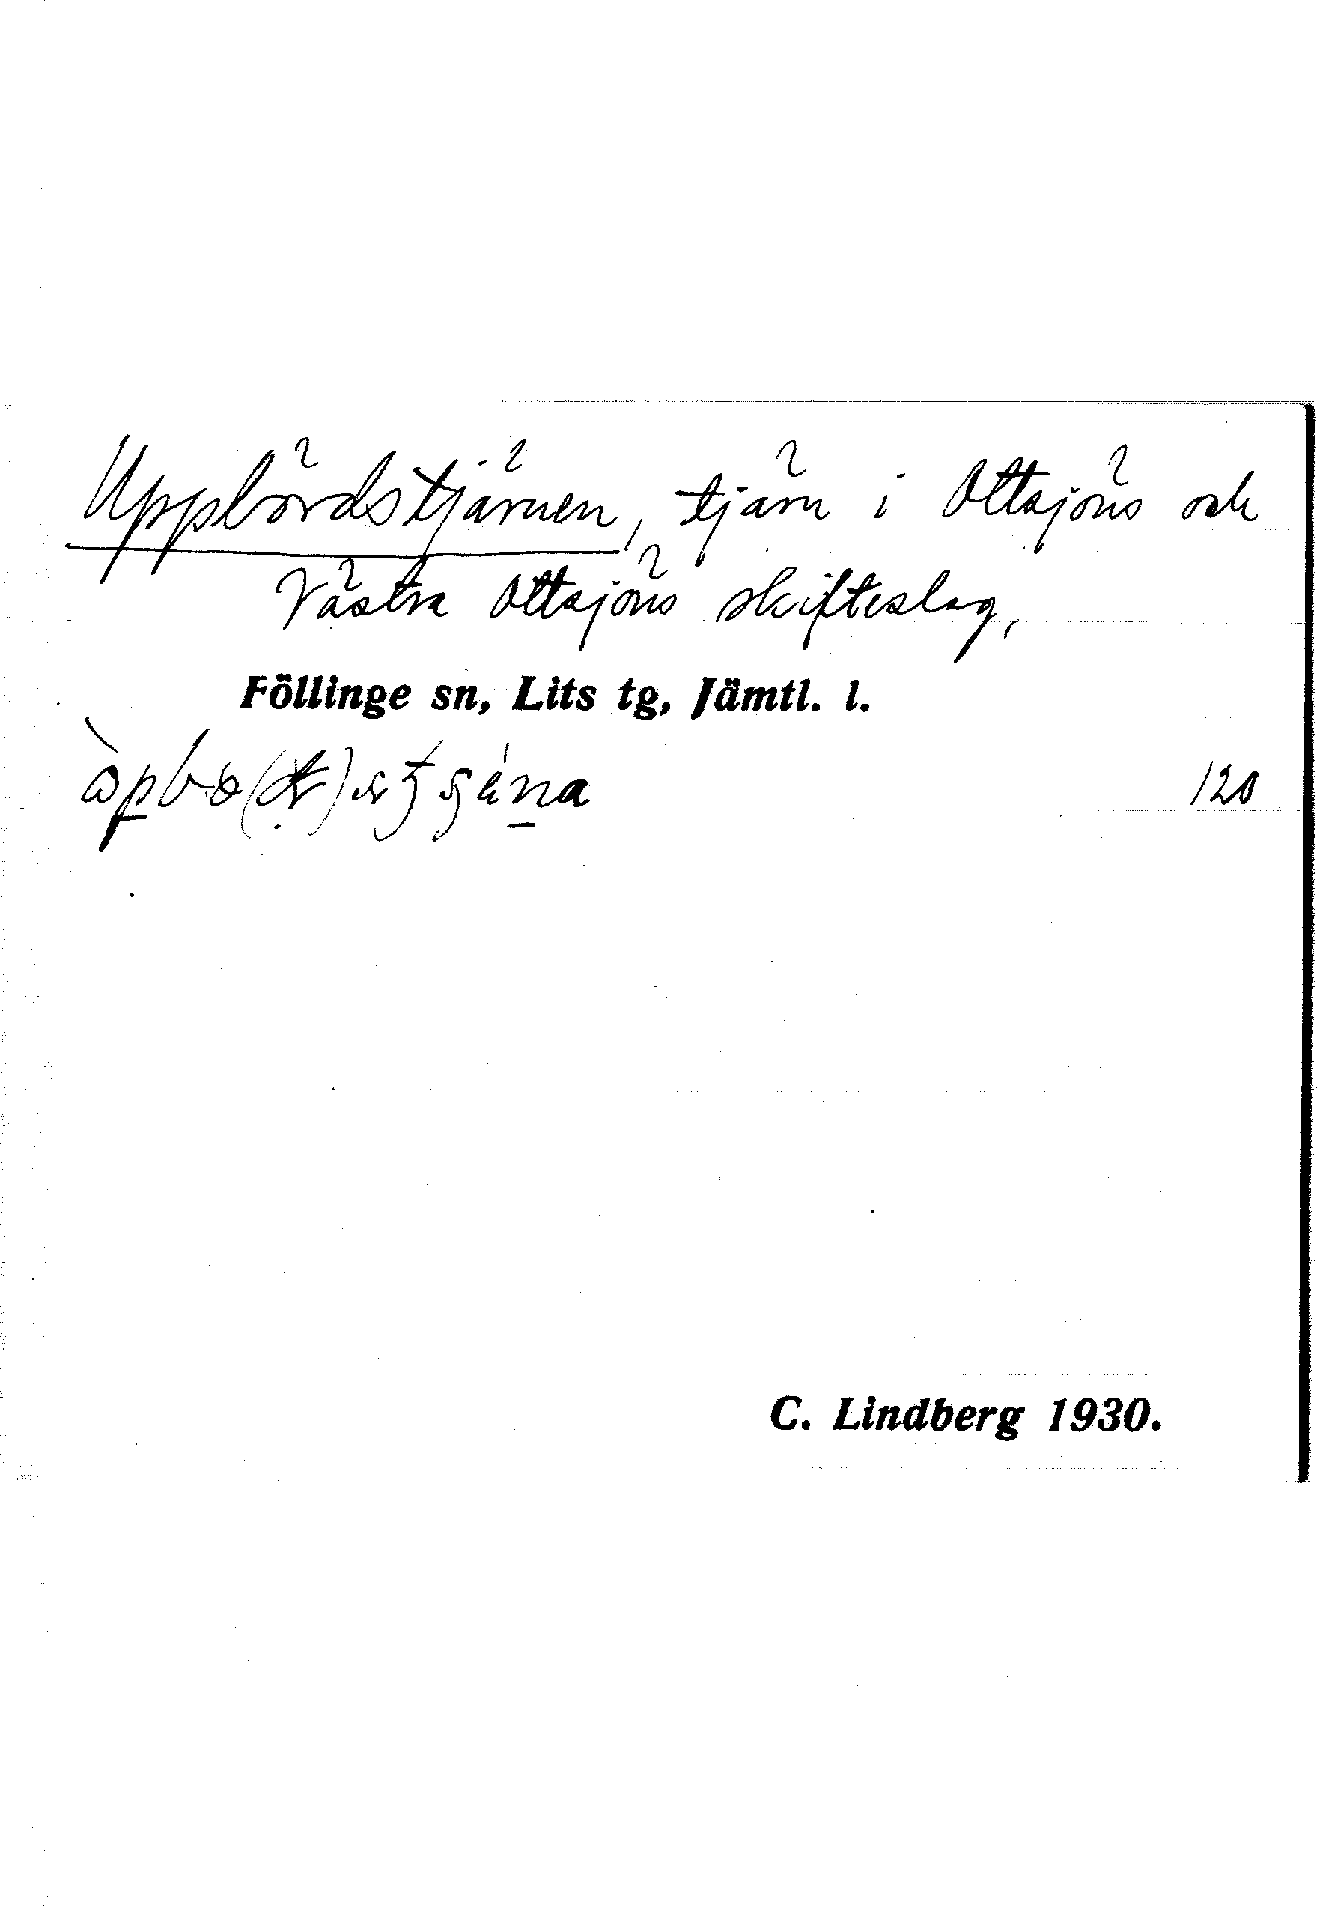 Uppbördstjärnen, tjärn i Ottsjöns och
Västra Ottsjöns skifteslag,
Föllinge sn, Lits tg, Jämtl. l.
120
C. Lindberg 1930.